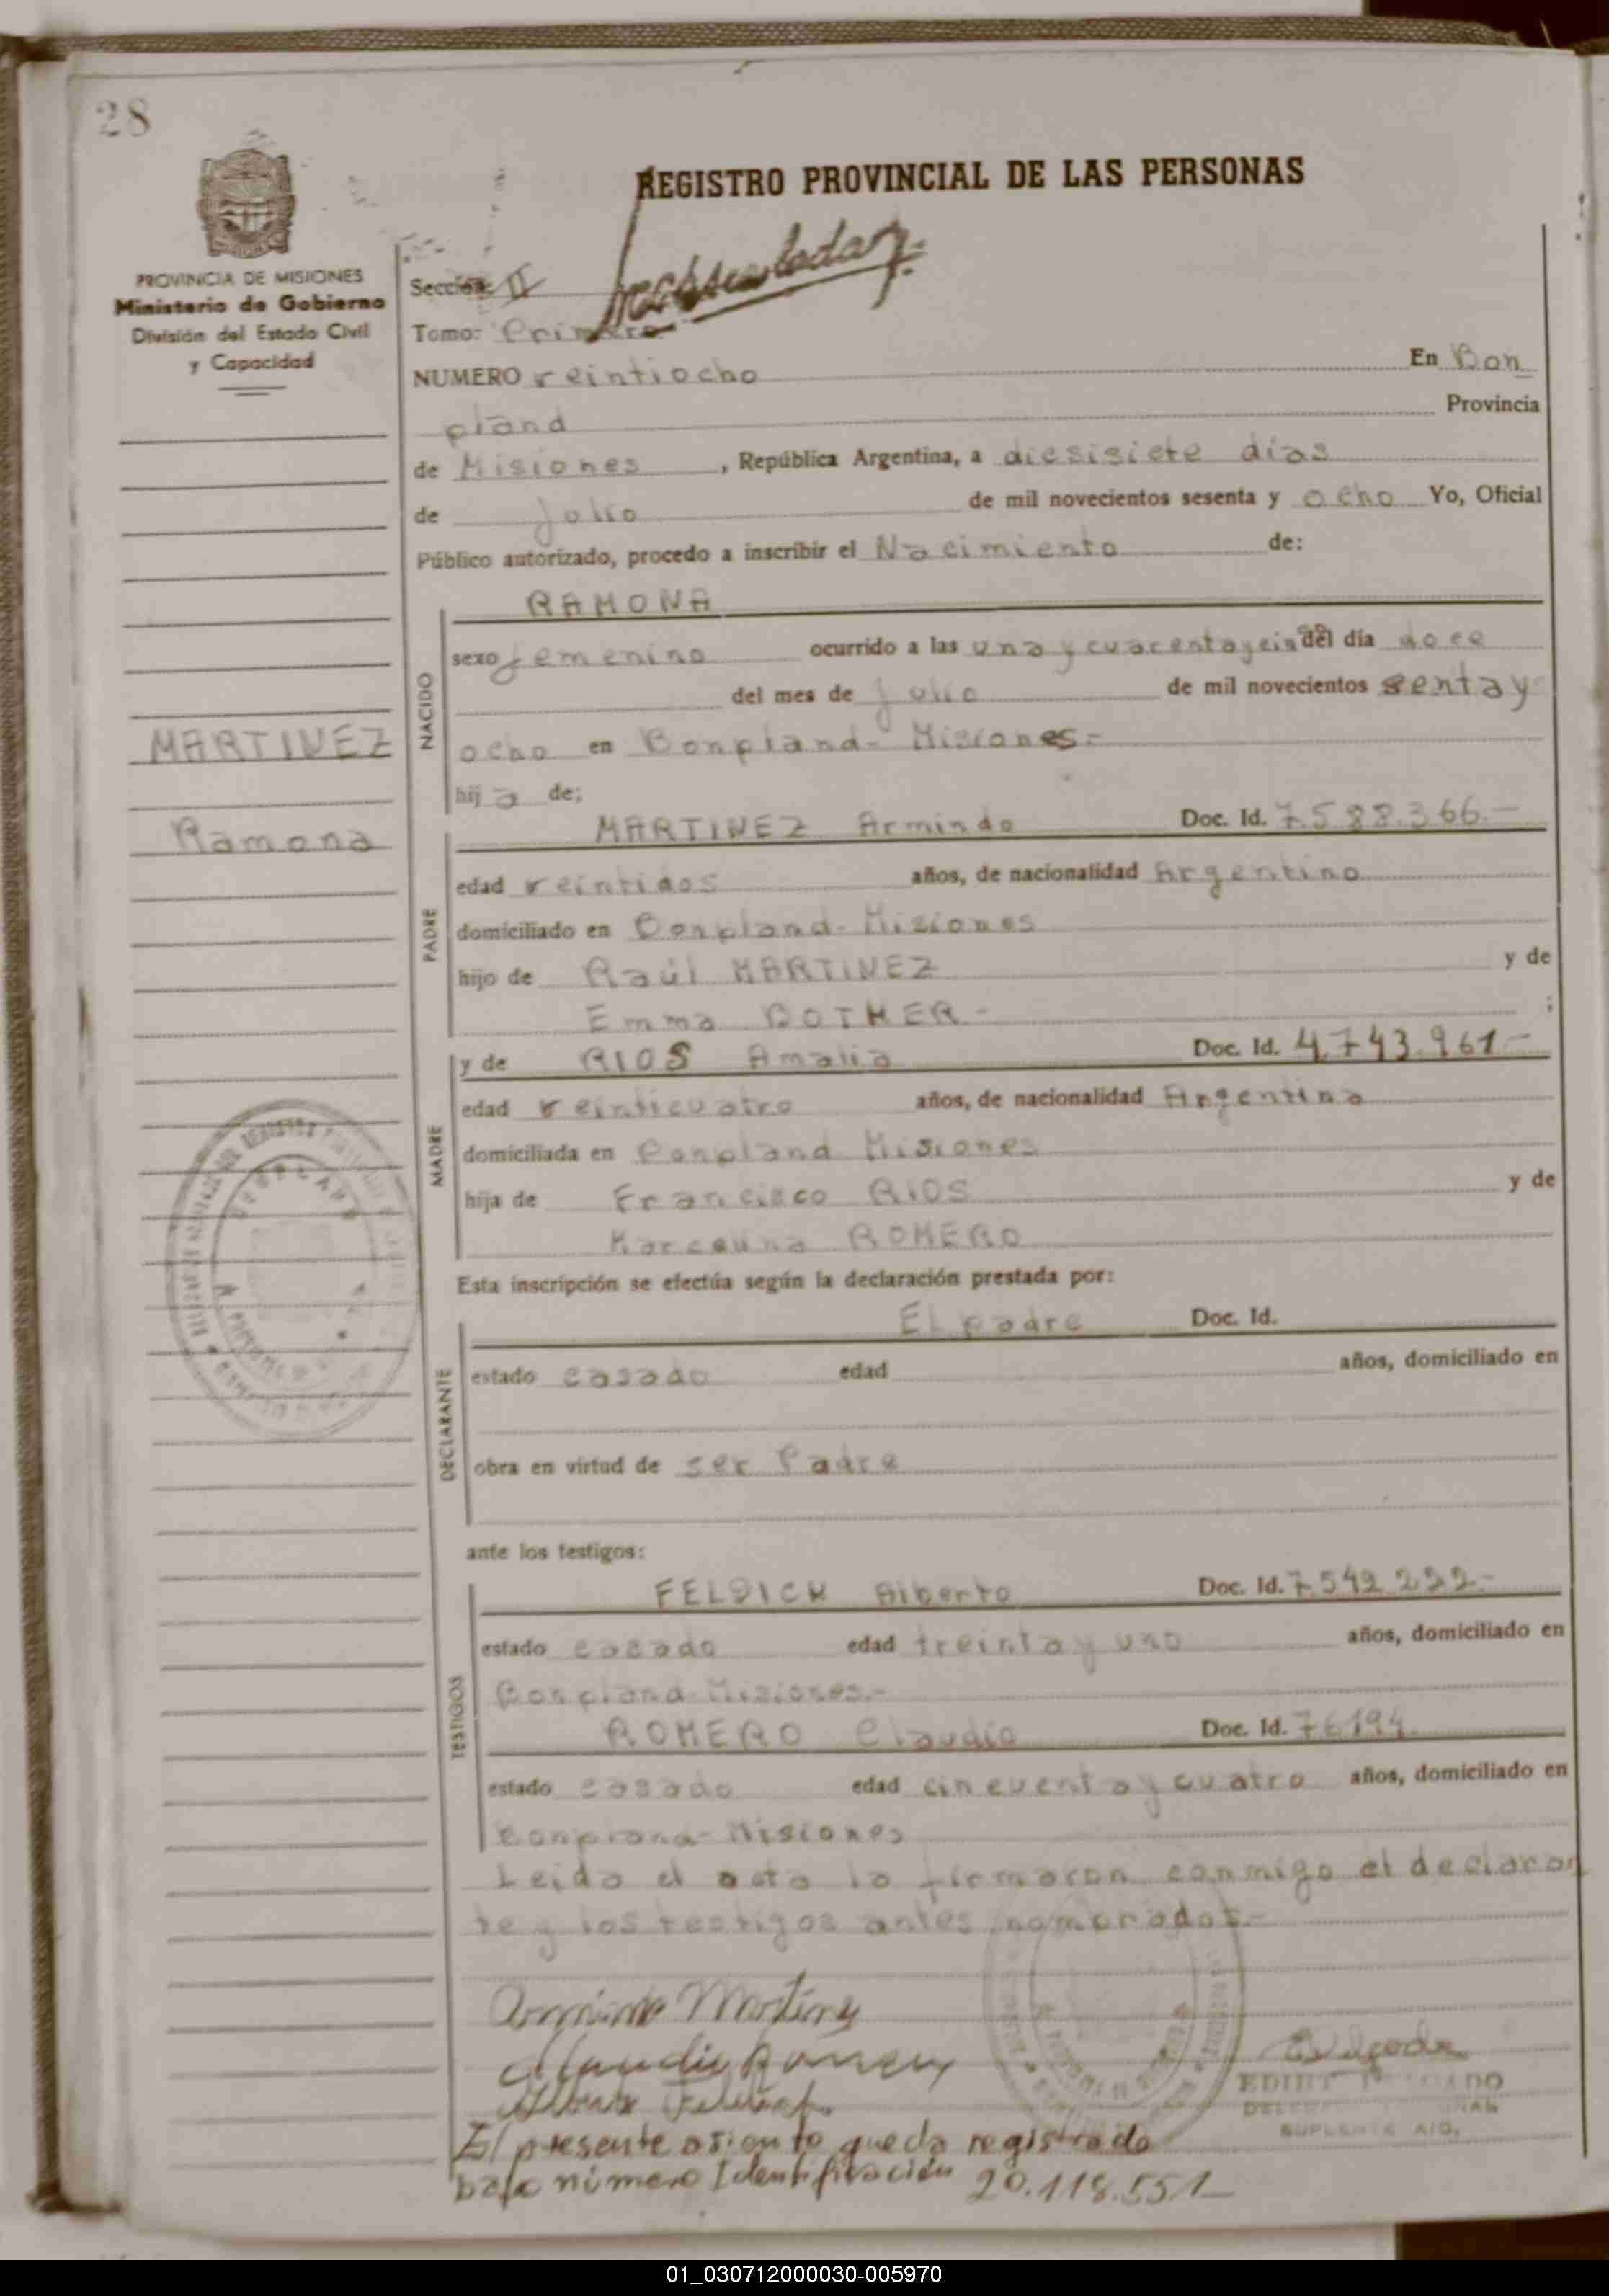 28
REGISTRO PROVINCIAL DE LAS PERSONAS
PROVINCIA DE MISIONES
Ministerio de Gobierno
División del Estado Civil
y Capacidad
Sección: II
Tomo: Primero
NUMERO veintiocho En Bon
pland Provincia
de Misiones, República Argentina, a diesisiete días
de Julio de mil novecientos sesenta y ocho Yo, Oficial
Público autorizado, procedo a inscribir el Nacimiento de:
RAMONA
NACIDO
sexo femenino ocurrido a las una y cuarenta y del día doce
del mes de julio de mil novecientos sentay
ocho en Bonpland- Misiones.-
hija de;
MARTINEZ
Ramona
PADRE
MARTINEZ Armindo Doc. Id. 7.588.366.-
edad veintidos años, de nacionalidad Argentino
domiciliado en Bonpland- Misiones
hijo de Raúl MARTINEZ y de
Emma BOTHER- ;
MADRE
y de RIOS Amalia Doc. Id. 4.743.961-
edad veinticuatro años, de nacionalidad Argentina
domiciliada en Bonpland Misiones
hija de Francisco RIOS y de
Marcelina ROMERO
Esta inscripción se efectúa según la declaración prestada por:
DECLARANTE
El padre Doc. Id.
estado casado edad años, domiciliado en
obra en virtud de ser Padre
ante los testigos:
TESTIGOS
Alberto Doc. Id. 7.542.222-
estado casado edad treinta y uno años, domiciliado en
Bonpland-Misiones.-
ROMERO Claudio Doc. Id. 76194
estado casado edad cincuenta y cuatro años, domiciliado en
Bonpland- Misiones
Leida el acta la firmaron conmigo el declaran
te y los testigos antes nombrados.-
Armindo Martinez
El presente asiento queda registrado
bajo número Identificación 20.118.551
01_030712000030-005970